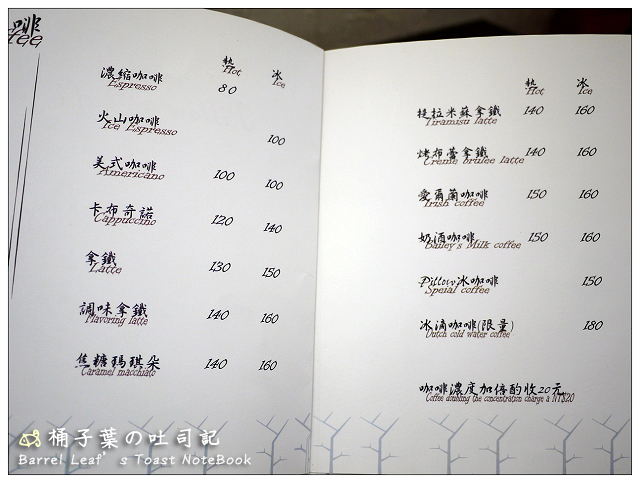 啡
ffee
熱 冰
Hot Ice
濃縮咖啡 80
Espresso
火山咖啡 100
Ice Espresso
美式咖啡 100 100
Americano
卡布奇諾 120 140
Cappuccino
拿鐵 130 150
Latte
調味拿鐵 140 160
Flavoring latte
焦糖瑪琪朵 140 160
Caramel macchiato
熱 冰
Hot Ice
提拉米蘇拿鐵 140 160
Tiramisu latte
烤布蕾拿鐵 140 160
Creme brulee latte
愛爾蘭咖啡 150 160
Irish coffee
奶酒咖啡 150 160
Bailey's Milk coffee
Pillow冰咖啡 150
Speial coffee
冰滴咖啡(限量) 180
Dutch cold water coffee
咖啡濃度加倍酌收20元
Coffee doubling the concentration charge a NT$20
桶子葉の吐司記
Barrel Leaf's Toast NoteBook